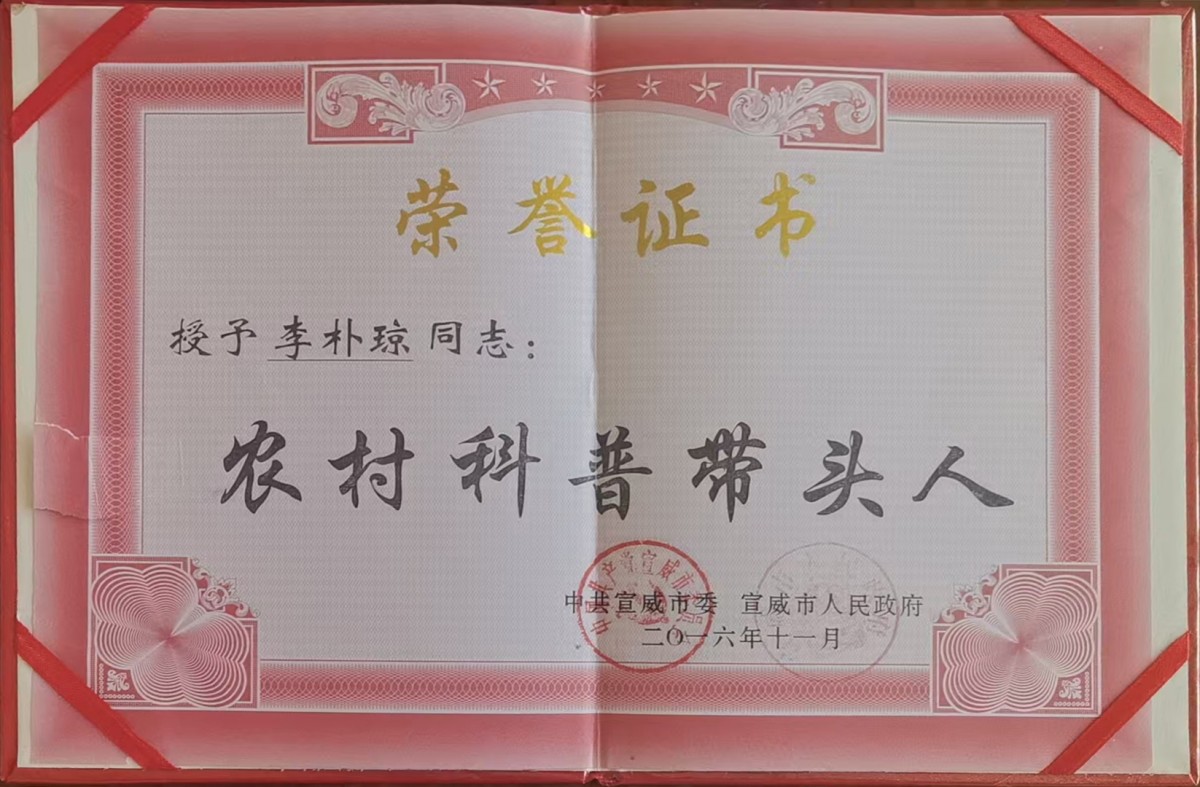 荣誉证书
授予李朴琼同志：
农村科普带头人
中共宣威市委 宣威市人民政府
二〇一六年十一月